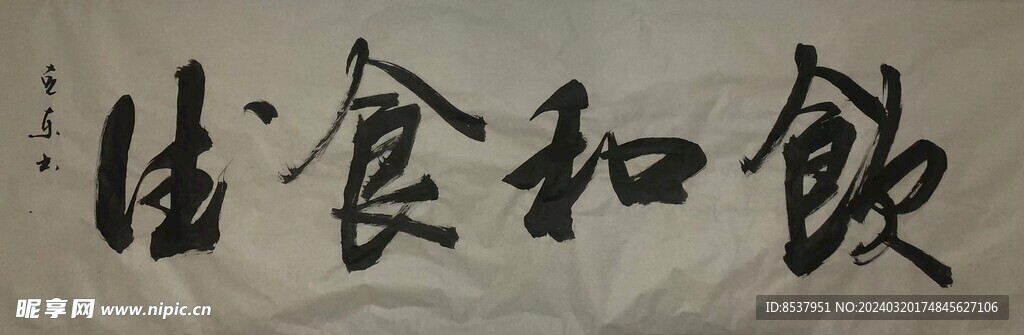 飲和食德
东书
昵享网 www.nipic.cn
ID:8537951 NO:20240320174845627106